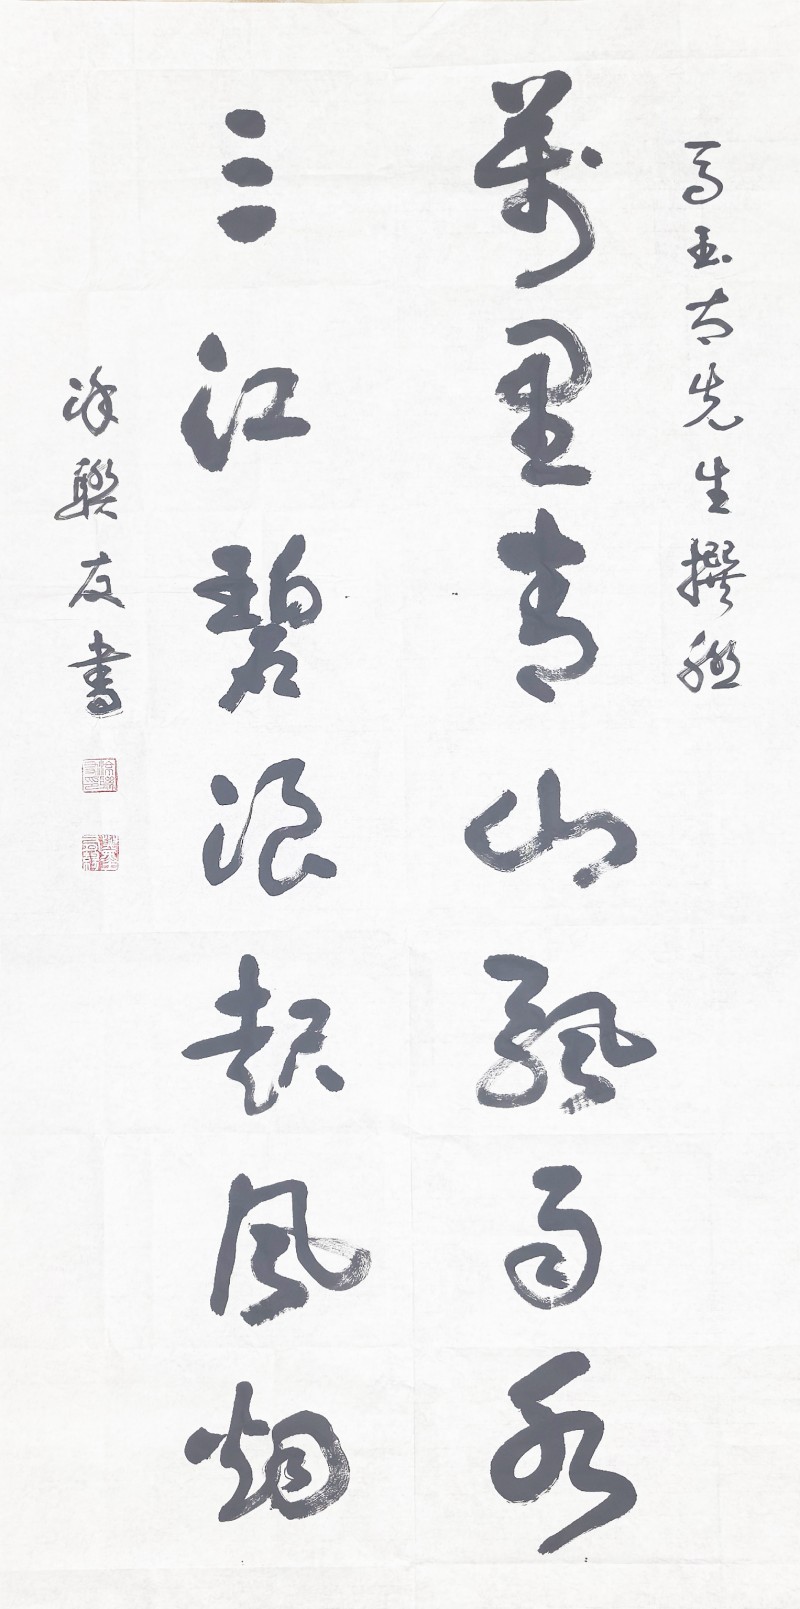 馬玉先生撰聯
萬里青山飄雨
三江碧浪起風烟
涂聯友書